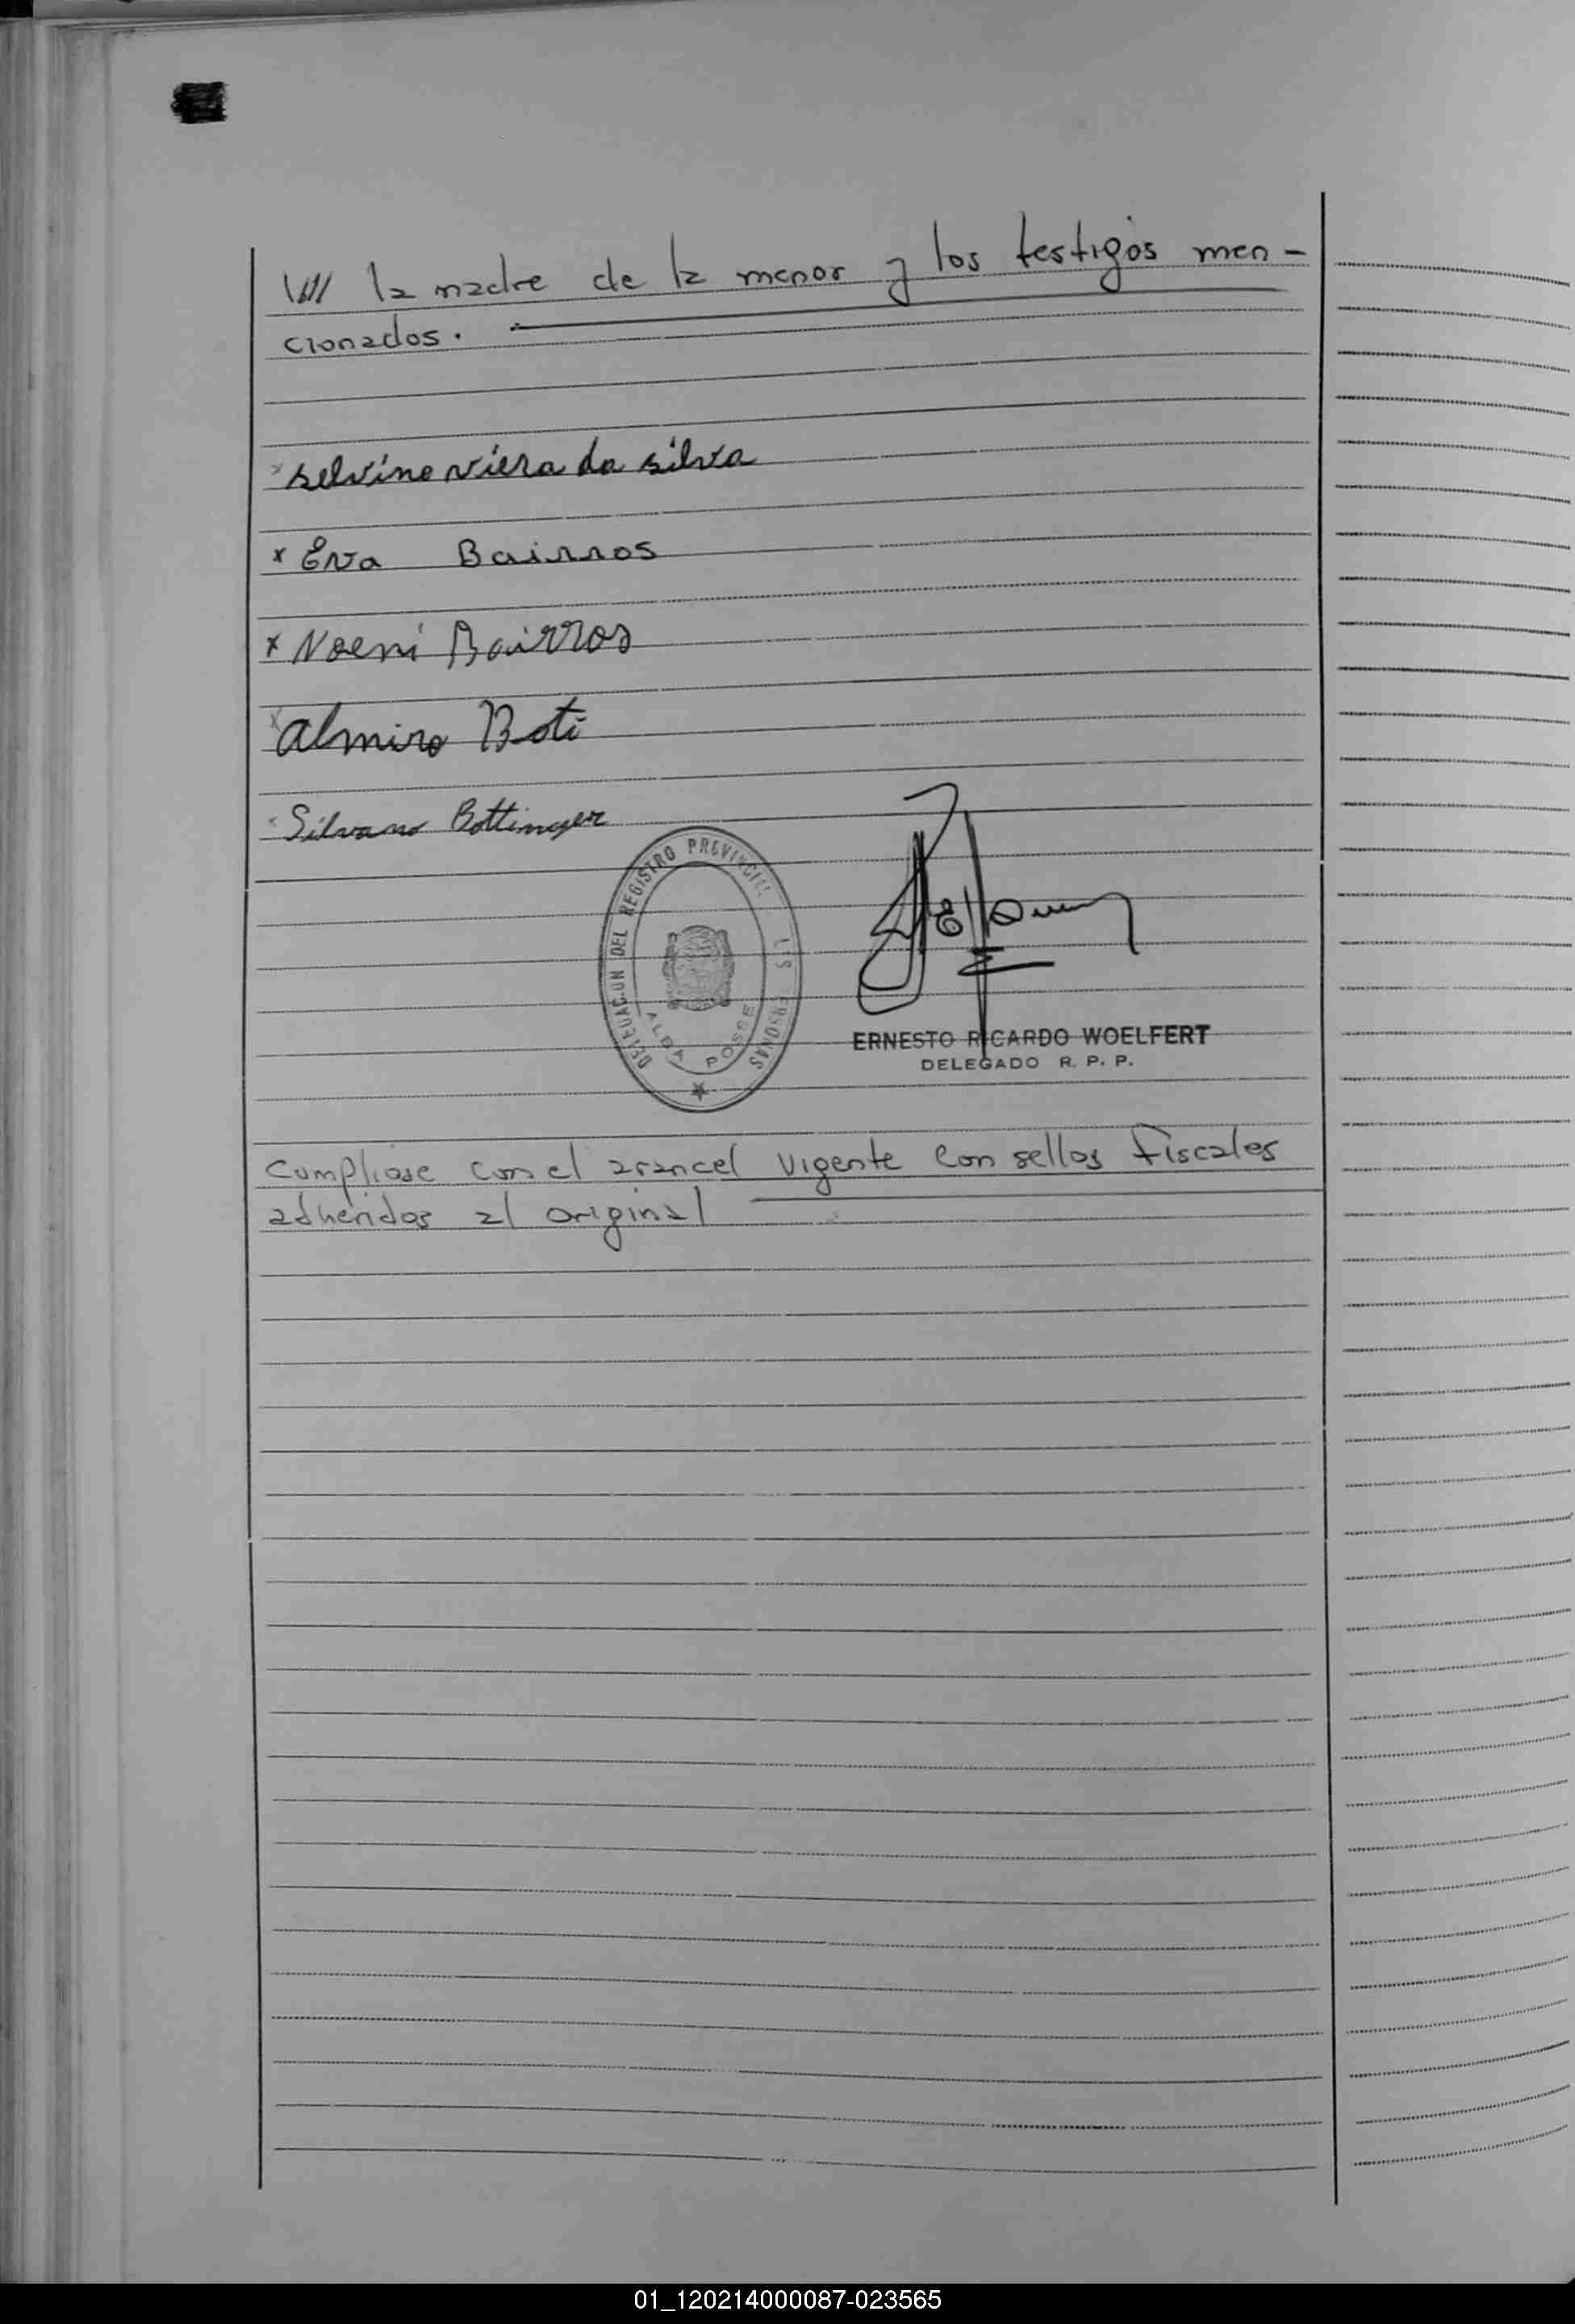 //// la madre de la menor y los testigos men-
cionados.
x selvino viera da silva
x Eva Bairros
x Noemi Bairros
x almiro Boti
x Silvano Bottinger
DELEGACION DEL REGISTRO PROVINCIAL PERSONAS
ALBA POSSE
ERNESTO RICARDO WOELFERT
DELEGADO R. P. P.
Cumpliose con el arancel vigente con sellos fiscales
adheridos al original
01_120214000087-023565